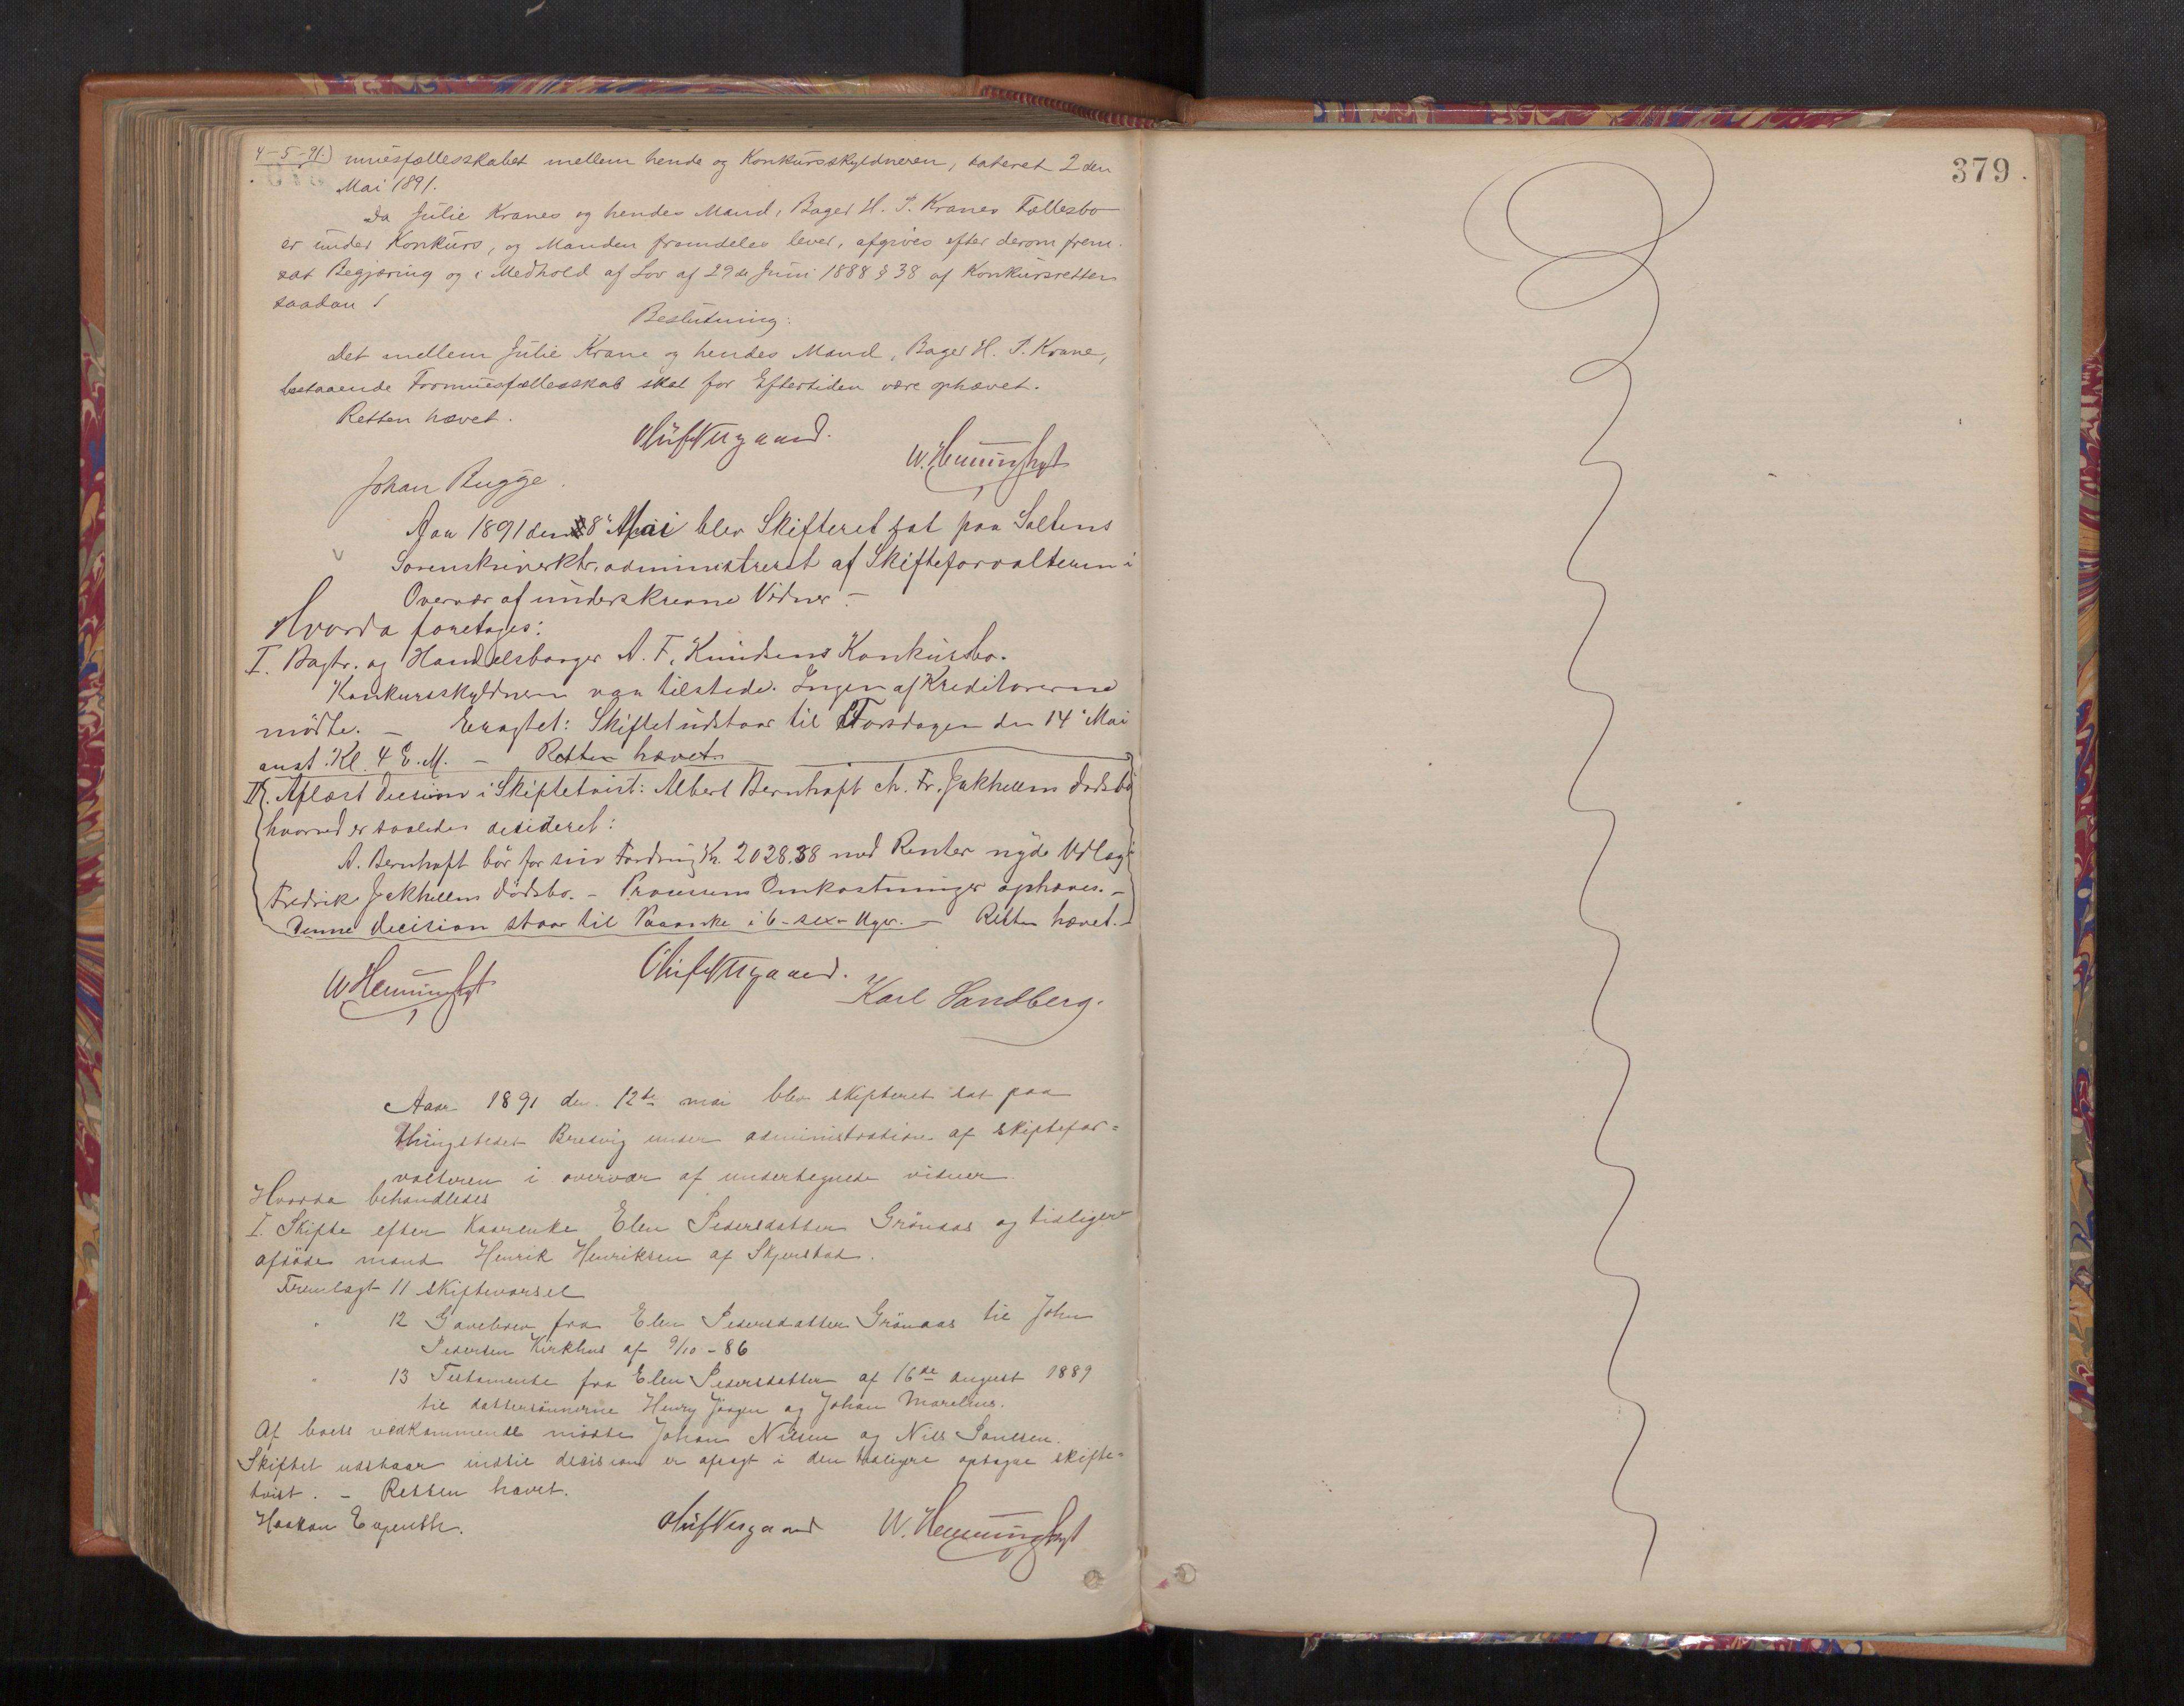 4-5-91.) muesfællesskabet mellem hende og Konkursskyldneren, dateret 2den
Mai 1891.
Da Julie Kranes og hendes Mand, Bager H. P. Kranes Fællesbo
er under Konkurs, og Manden fremdeles lever, afgives efter derom frem-
sat Begjæring og i Medhold af Lov af 29de Juni 1888 § 38 af Konkursretten
saadan
Beslutning:
Det mellem Julie Krane og hendes Mand, Bager H. P. Krane,
bestaaende Formuesfællesskab skal for Eftertiden være ophævet.
Retten hævet.
Johan Bugge.
Aar 1891 den 8' Mai blev Skifteret sat paa Saltens
Sorenskriverktr. administreret af Skifteforvalteren i
Overvær af underskrevne Vidner.-
Hvorda foretages:
I. Bagtr. og Handelsborger A. F. Knudsens Konkursbo.
Konkursskyldneren var tilstede. Ingen af Kreditorerne
mødte. - Eragtet: Skiftet udstaar til Torsdagen den 14' Mai
anst. Kl. 4 E. M. - Retten hævet.
II. Aflæst Decision i Skiftetvist: Albert Bernhoft ctr. Fr. Jakhellns Dødsbo
hvorved er saaledes decideret:
A. Bernhoft bør for sin Fordring Kr. 2028.38 med Renter nyde Udlæg i
Fredrik Jakhellns Dødsbo. - Processens Omkostninger ophæves. -
Denne Decision staar til Paaanke i 6 - sex - Uger. - Retten hævet.-
Karl Sandberg.
Aar 1891 den 12te mai blev skifteret sat paa
thingstedet Bredvig under administration af skiftefor=
valteren i overvær af undertegnede vidner
Hvorda behandledes
I. Skifte efter Kaarenke Elen Pedersdatter Grönaas og tidligere
afdöde mand Henrik Henriksen af Skjerstad.
Fremlagt 11 skiftevarsel
" 12 Gavebrev fra Elen Pedersdatter Grönaas til John
Pedersen Kirkhus af 9/10-86
" 13 Testamente fra Elen Pedersdatter af 16de august 1889
til dattersönnerne Henry Jörgen og Johan Marelius.
Af boets vedkommende mödte Johan Nilsen og Nils Paulsen.
Skiftet udstaar indtil decision er afsagt i den tidligere optagne skifte=
tvist. - Retten hævet.
379.